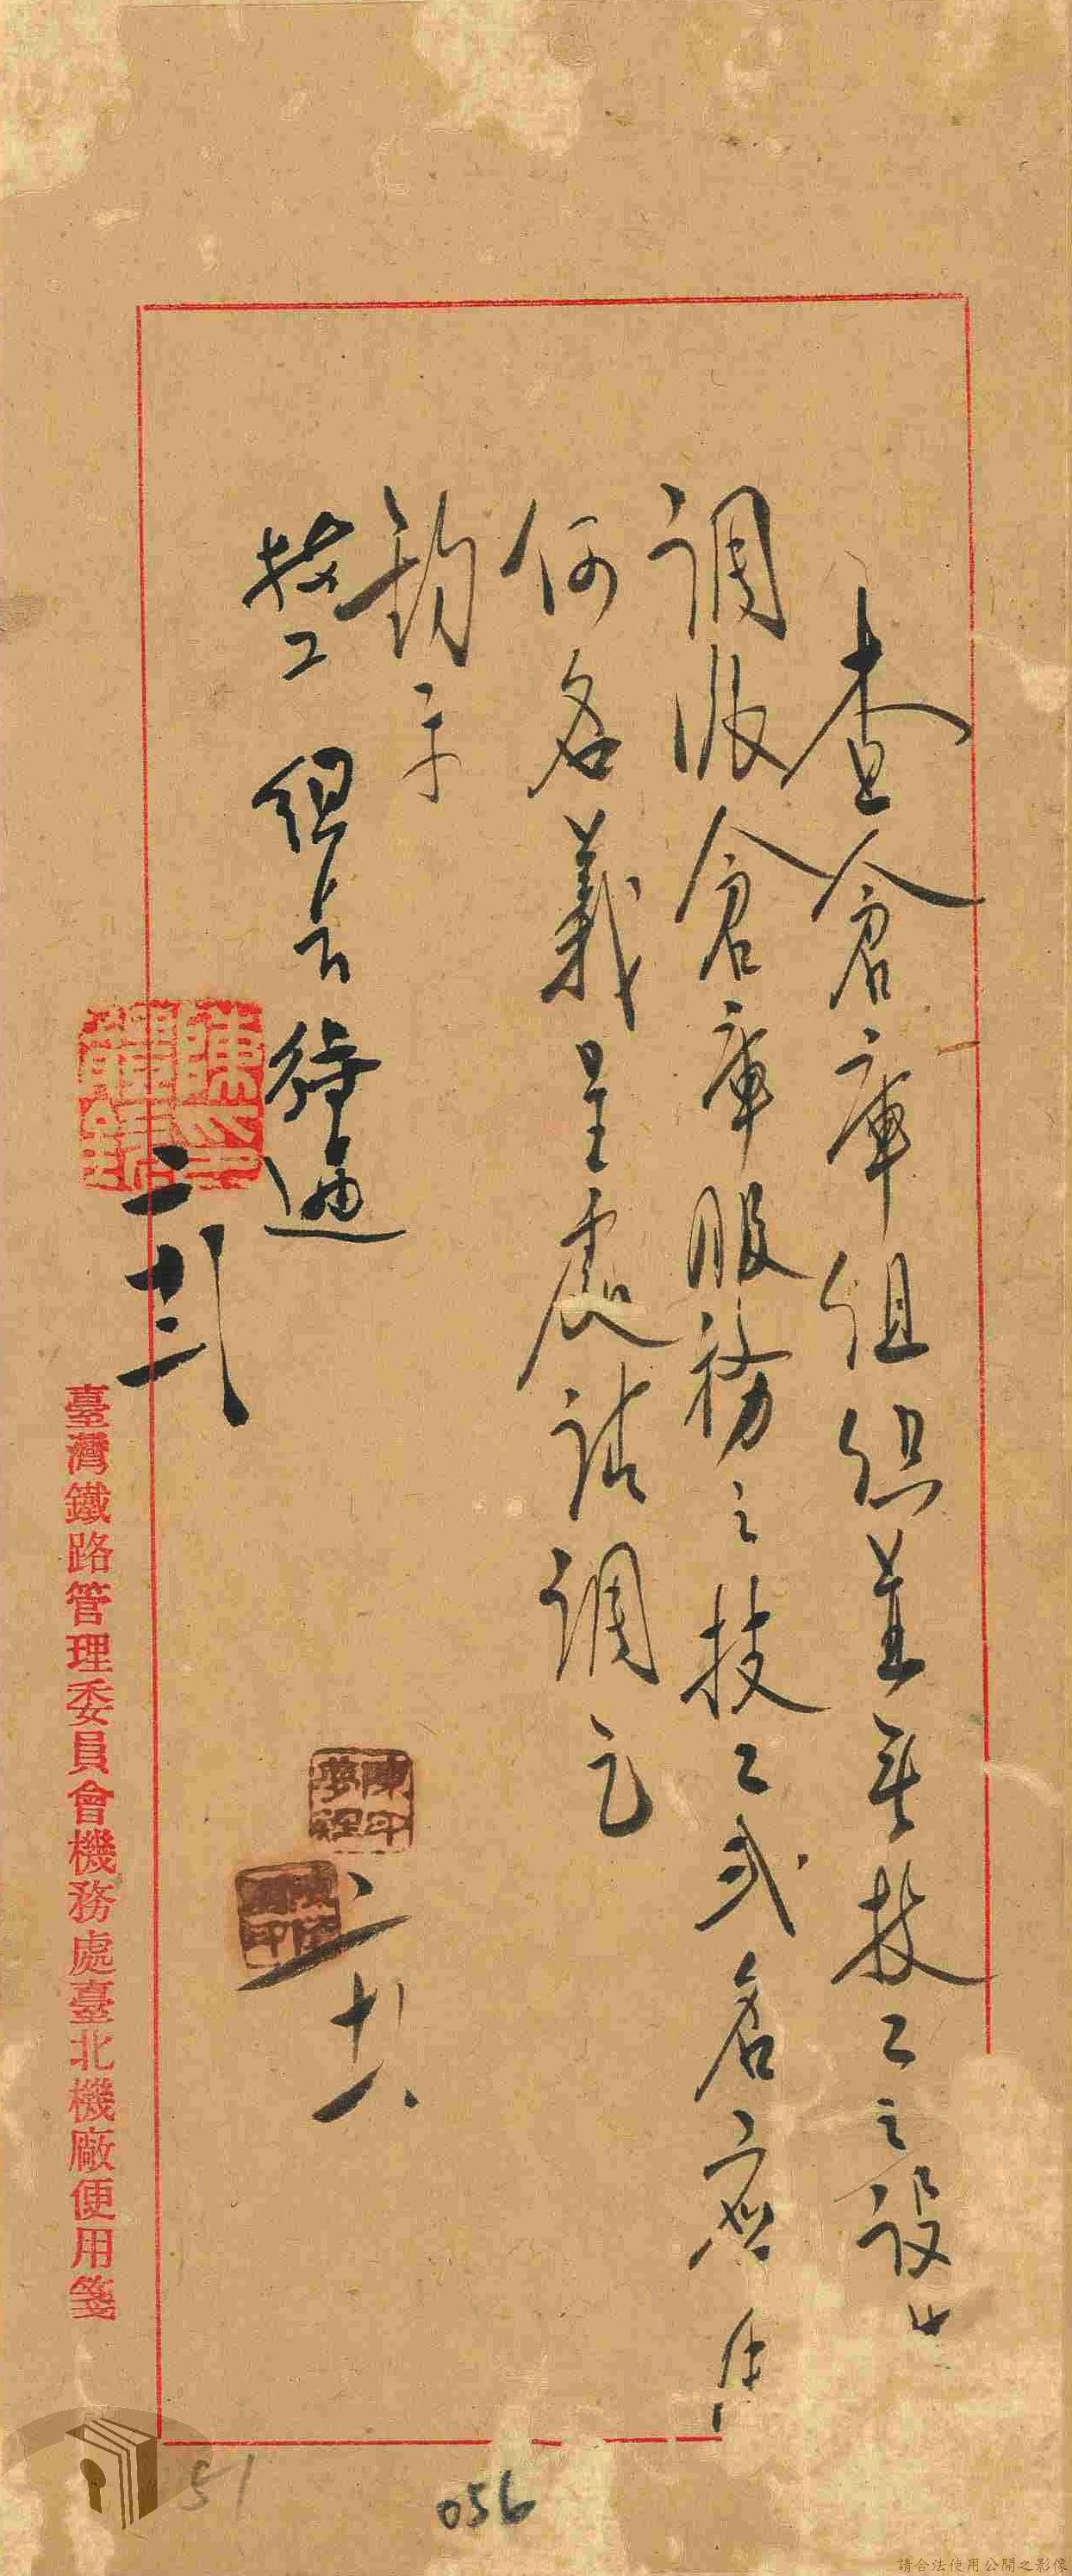 查倉庫組組織並無技工之設
调派倉庫服務之技工弍名應
何名義呈處請調乞
鈞示
技工 組長待遇
二
二十八
臺灣鐵路管理委員會機務處臺北機廠便用箋
51
056
請合法使用公開之影像